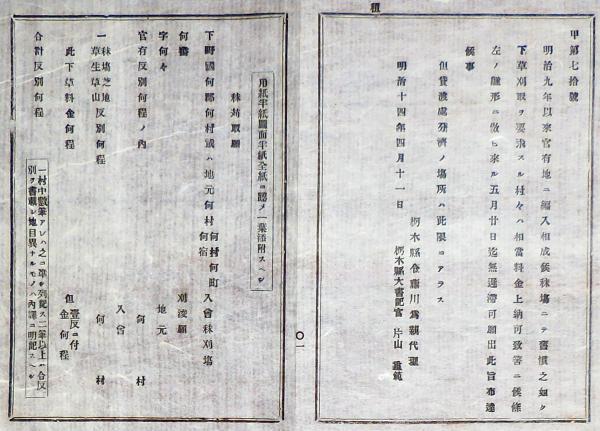 甲第七拾號
明治九年以來官有地ニ編入相成候秣塲ニテ舊慣之如ク
下草刈取ヲ要求スル村々ハ相當料金上納可致筈ニ候條
左ノ雛形ニ傚ヒ來ル五月廿日迄無遲滯可願出此旨布達
候事
但貸渡處分濟ノ塲所ハ此限ニアラス
明治十四年四月十一日
栃木縣令藤川爲親代理
栃木縣大書記官 片山重範
〇一
用紙半紙圖面半紙全紙ニ認メ一葉添附スヘシ
秣苅取願
下野國何郡何村或ハ地元何村何宿何村何町入會秣刈塲
何番
字何々
刈渡願
官有反別何程ノ內
地元
何村
入會
何村
一秣塲芝地草生草山反別何程
此下草料金何程
但壹反ニ付金何程
合計反別何程
一村中數筆アレハ之ニ準シ列記ス二筆以上ハ合反
別ヲ書載シ地目異ナルモノハ內譯ニ明記スヘシ